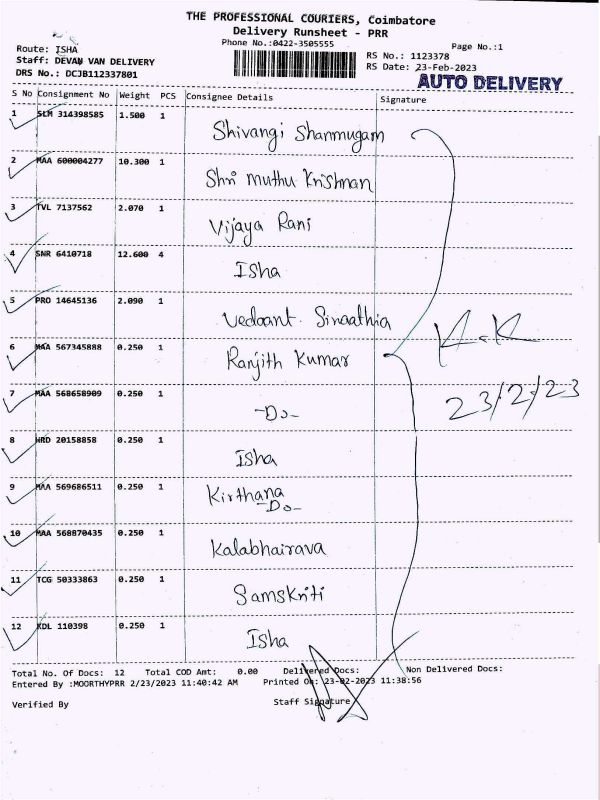 THE PROFESSIONAL COURIERS, Coimbatore
Delivery Runsheet - PRR
Phone No.:0422-3505555
Page No.:1
Route: ISHA
Staff: DEVAN VAN DELIVERY
DRS No.: DCJB112337801
RS No.: 1123378
RS Date: 23-Feb-2023
AUTO DELIVERY
S No Consignment No Weight PCS Consignee Details Signature
1 SLM 314398585 1.500 1 Shivangi Shanmugam
2 MAA 600004277 10.300 1 Shri Muthu Krishnan
3 TVL 7137562 2.070 1 Vijaya Rani
4 SNR 6410718 12.600 4 Isha
5 PRO 14645136 2.090 1 Vedaant. Sinaathia
6 MAA 567345888 0.250 1 Ranjith Kumar
K.K
7 MAA 568658909 0.250 1 -Do-
23/2/23
8 HRD 20158858 0.250 1 Isha
9 MAA 569686511 0.250 1 Kirthana
-Do-
10 MAA 568870435 0.250 1 Kalabhairava
11 TCG 50333863 0.250 1 Samskriti
12 KDL 110398 0.250 1 Isha
Total No. Of Docs: 12 Total COD Amt: 0.00 Delivered Docs: Non Delivered Docs:
Entered By :MOORTHYPRR 2/23/2023 11:40:42 AM Printed On: 23-02-2023 11:38:56
Verified By Staff Signature